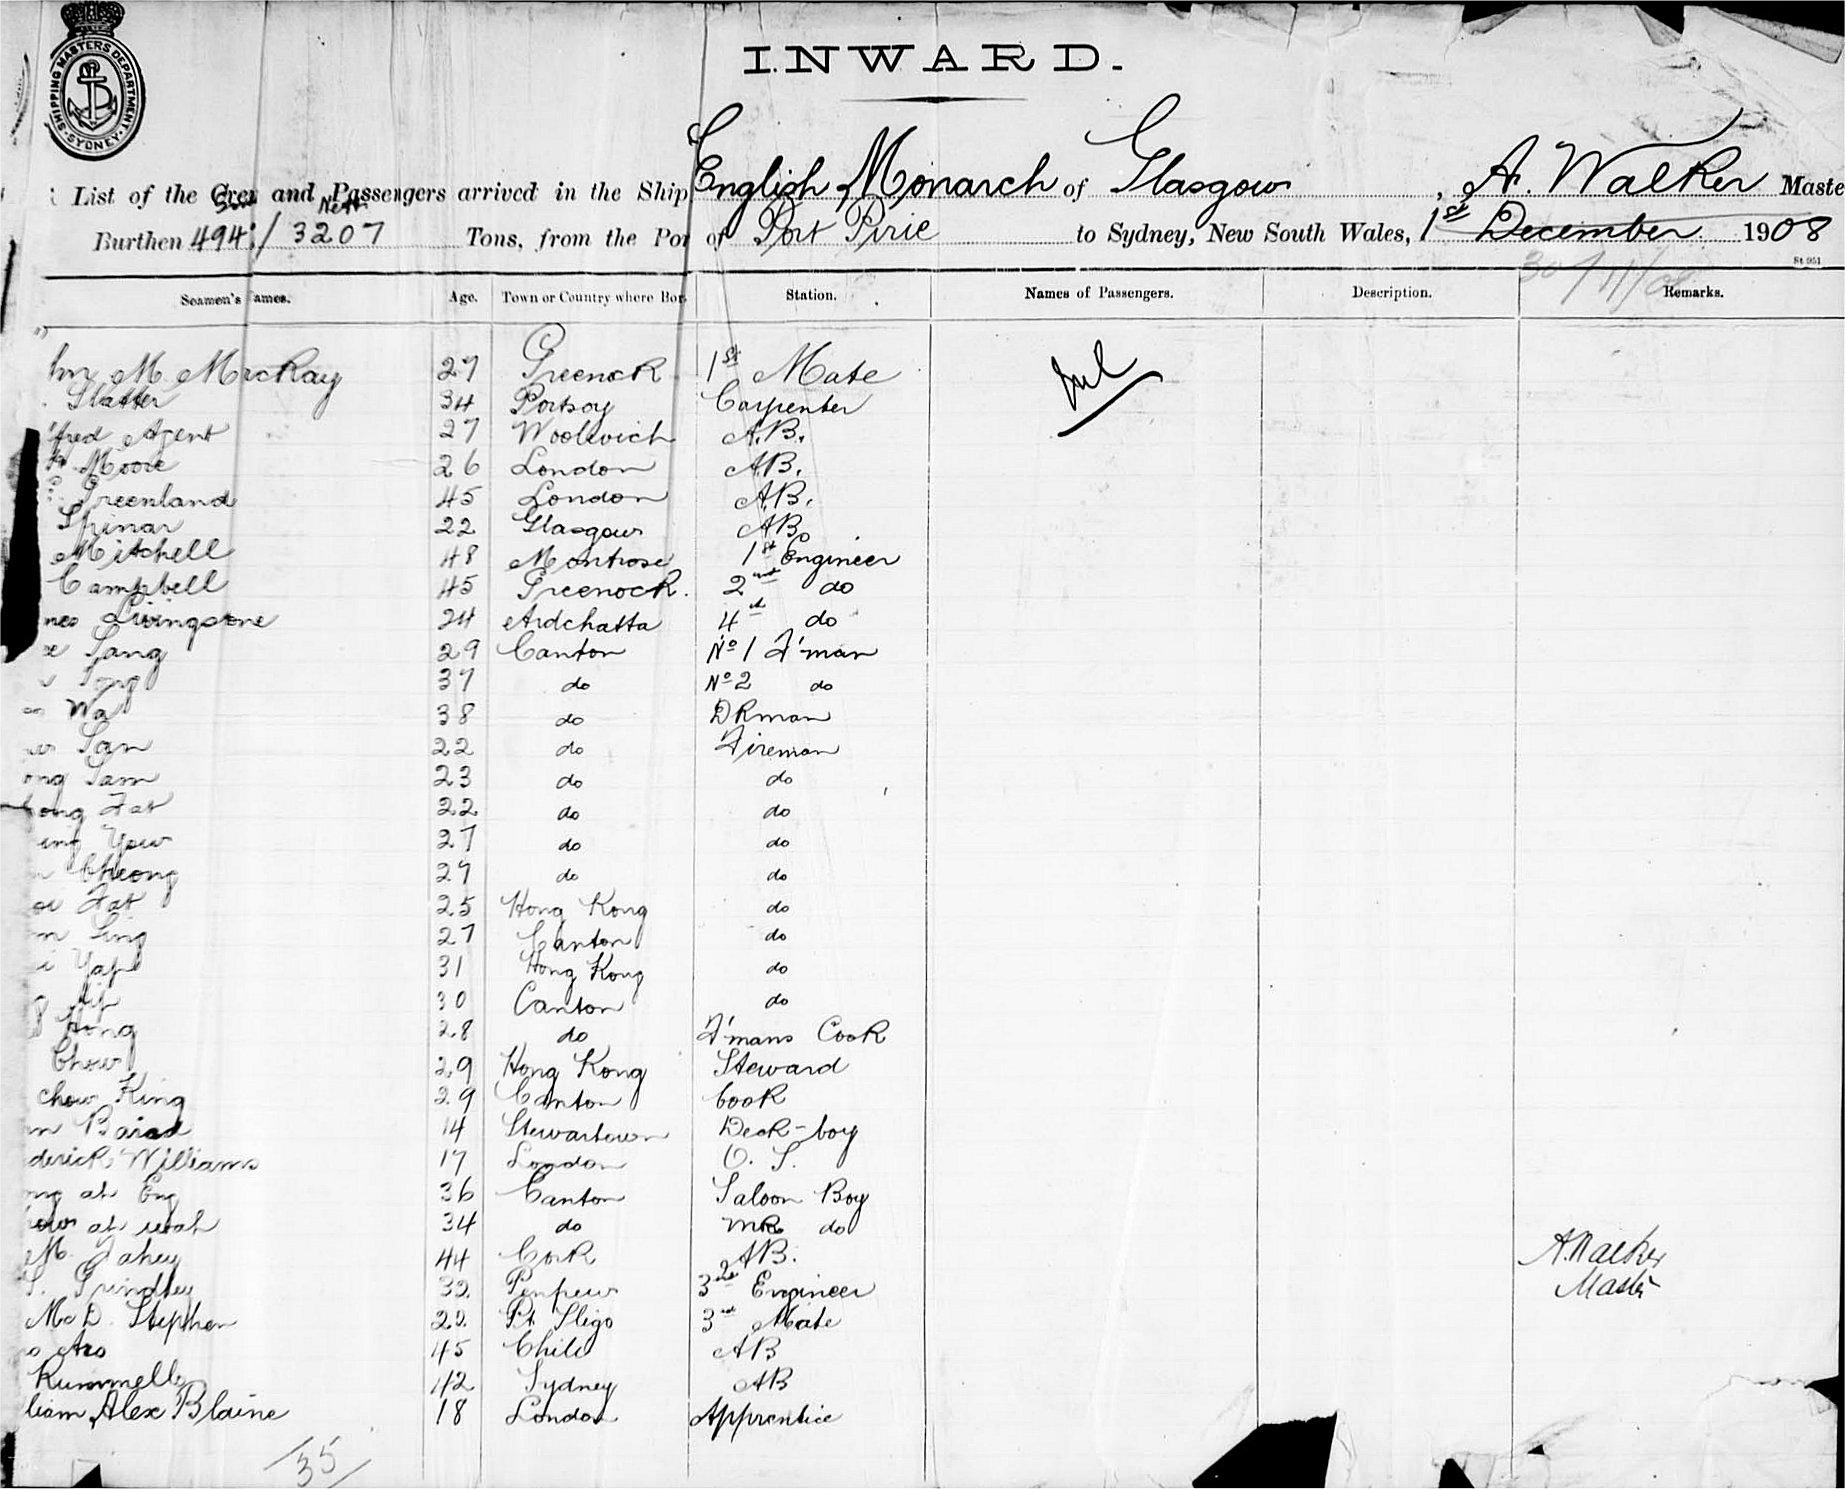 SHIPPING MASTERS DEPARTMENT
SYDNEY
INWARD.
List of the Crew and Passengers arrived in the Ship English Monarch of Glasgow, A. Walker Maste
Burthen 494 / 3207 Tons, from the Por of Port Pirie to Sydney, New South Wales, 1st December 1908
St 951
30/11/08
Seamen's ames. Age. Town or Country where Bor Station. Names of Passengers. Description. Remarks.
hn M MacKay 27 Greenock 1st Mate
Slatter 34 Portsoy Carpenter
fred Agent 27 Woolwich A.B.
Moore 26 London A.B.
Greenland 45 London A.B.
Spinar 22 Glasgow AB
Mitchell 48 Montrose 1st Engineer
Campbell 45 Greenock. 2nd do
mes Livingstone 24 Ardchatta 4th do
Sang 29 Canton No 1 F'man
37 do No 2 do
Wa 38 do DKman
San 22 do Fireman
ong Sam 23 do do
hong Fat 22 do do
ing Yow 27 do do
Cheong 27 do do
oi Fat 25 Hong Kong do
Sing 27 Canton do
Yap 31 Hong Kong do
30 Canton do
Hong 28 do F'mans Cook
Chow 29 Hong Kong Steward
chow King 29 Canton Cook
hn Baird 14 Stewartown Deck-boy
derick Williams 17 London O. S.
ong ah Eng 36 Canton Saloon Boy
how ah wah 34 do do
M. Fahey 44 Cork AB.
S. Grindley 32 3rd Engineer
McD. Stephen 22 Pt Sligo 3rd Mate
45 Chili AB
Rummells 42 Sydney AB
liam Alex Blaine 18 London Apprentice
Nil
A. Walker
Master
35